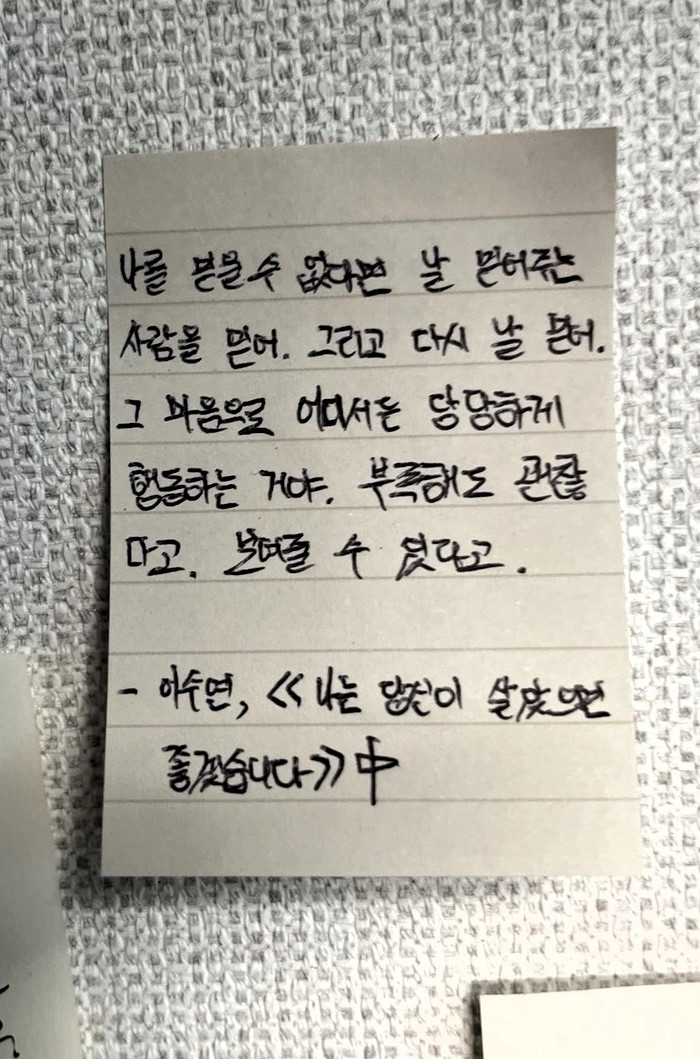 나를 믿을 수 없다면 날 믿어주는
사람을 믿어. 그리고 다시 날 믿어.
그 마음으로 어디서든 당당하게
행동하는 거야. 부족해도 괜찮
다고. 보여줄 수 있다고.
- 이수연, << 나는 당신이 살았으면
좋겠습니다>> 中